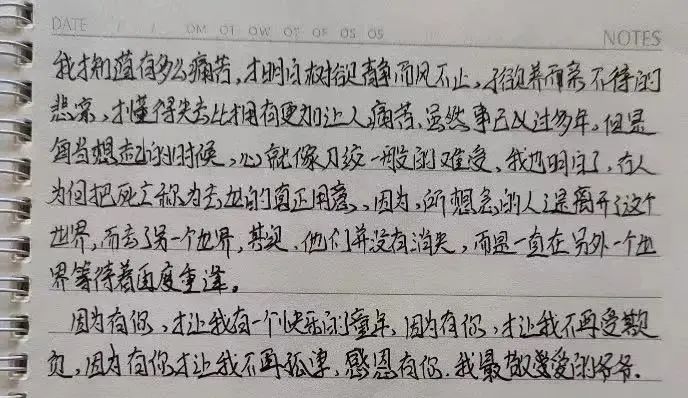 DATE / / MO TU WE TH FR SA SU
NOTES
我才知道有多么痛苦,才明白树欲静而风不止,子欲养而亲不待的
悲哀,才懂得失去比拥有更加让人痛苦,虽然事已以过多年,但是
每当想起你的时候,心就像刀绞一般的难受,我也明白了,古人
为何把死亡称为去世的真正用意,因为,所想念的人是离开了这个
世界,而去了另一个世界,其实,他们并没有消失,而是一直在另外一个世
界等待着再度重逢。
因为有你,才让我有一个快乐的童年,因为有你,才让我不再受欺
负,因为有你才让我不再孤单,感恩有你,我最敬爱爱的爷爷.